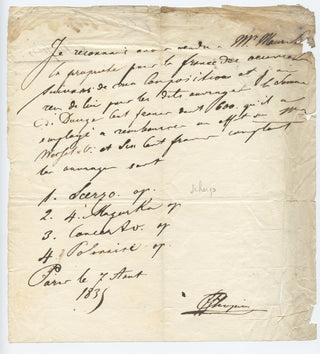 Je reconnais avoir vendu a Mr Maurice
la propriété pour la france des œuvres
suivans de ma Composition et
reçu de lui pour les dits ouvrages la Somme
de Douze Cent francs dont 600 qu'il a
employé a rembourser un effet
et Six Cent francs comptant
les ouvrages sont
1. Scerzo op.
2. 4 Mazurka op
3. Concerto. op
4 Polonaise op.
Paris le 7 Aout
1835
Chopin